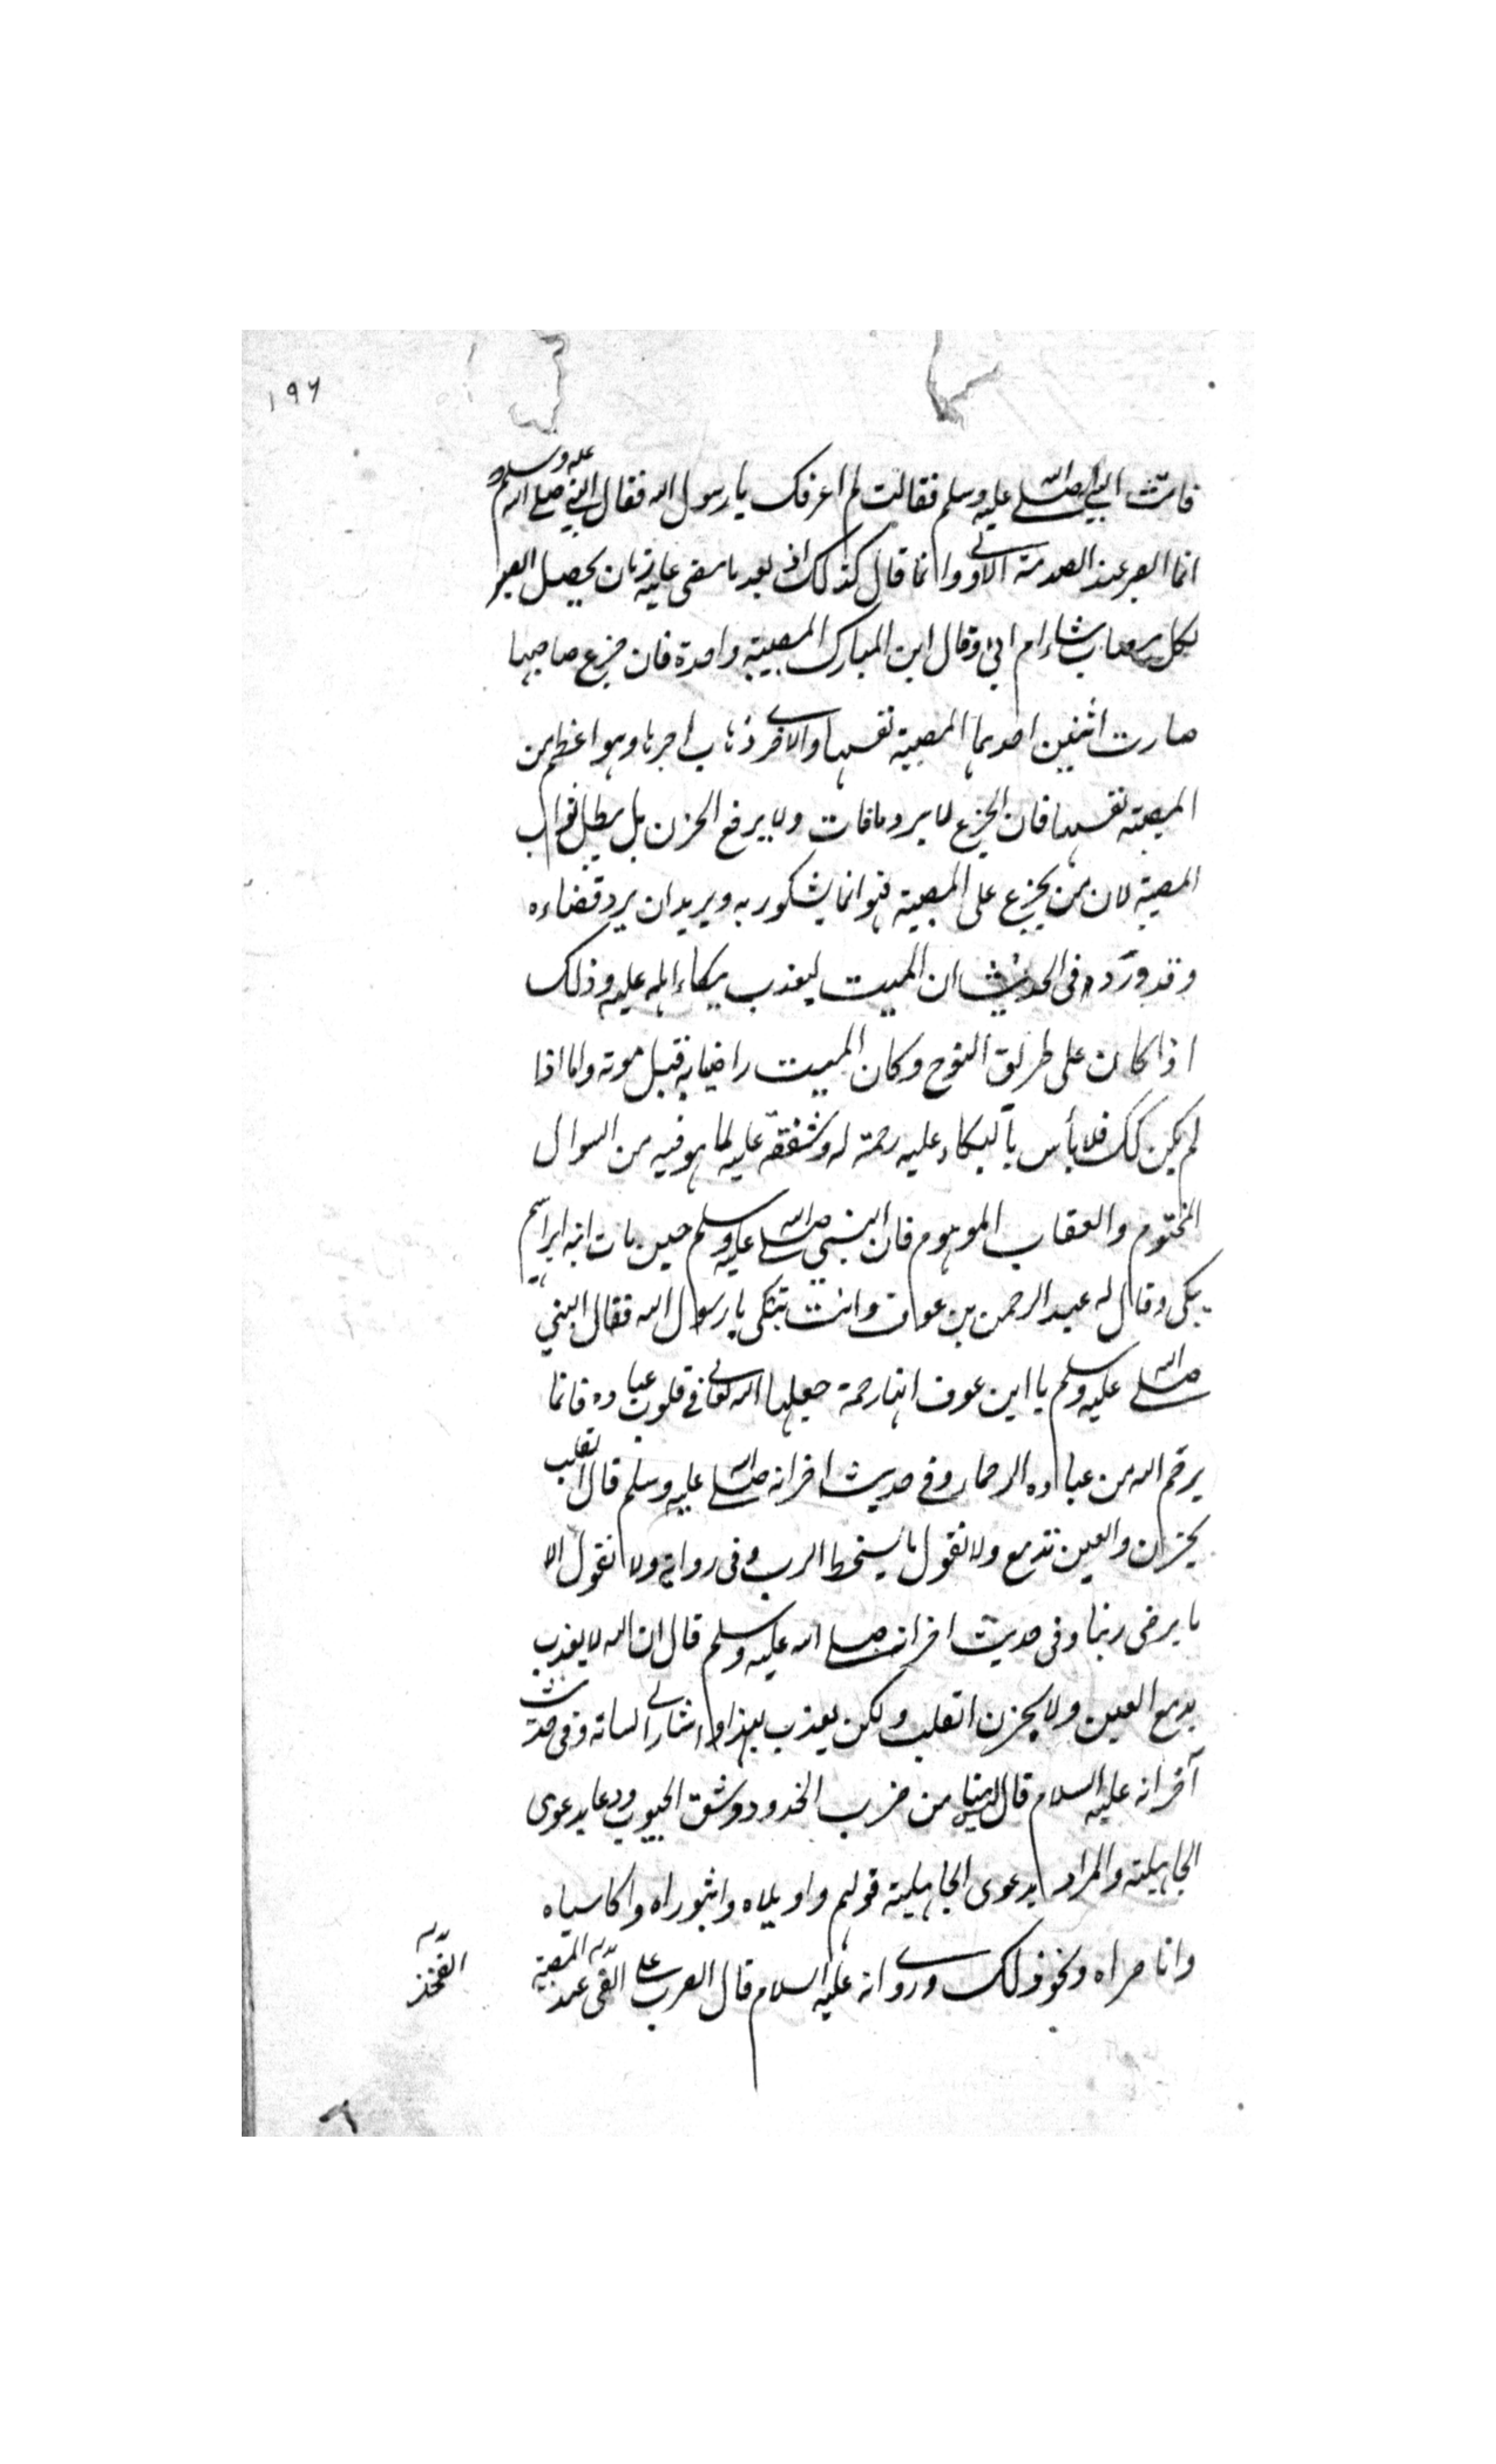 ١٩٦
فاتت النبي صلى الله عليه وسلم فقالت لم اعرفك يا رسول الله فقال النبي صلى الله عليه وسلم
انما الصبر عند الصدمة الاولى وانما قال كذلك اذ بعد ما مضى عليه زمان يحصل الصبر
لكل مصاب شاء ام ابى وقال ابن المبارك المصيبة واحدة فان جزع صاحبها
صارت اثنين احديهما المصيبة نفسها والاخرى ذهاب اجرها وهو اعظم من
المصيبة نفسها فان الجزع لا يرد ما فات ولا يرفع الحزن بل يبطل ثواب
المصيبة لان من يجزع على المصيبة فهو انما يشكو ربه ويريد ان يرد قضاءه
وقد ورد في الحديث ان الميت ليعذب ببكاء اهله عليه وذلك
اذا كان على طريق النوح وكان الميت راضيا به قبل موته واما اذا
لم يكن كك فلا بأس بالبكاء عليه رحمة له وشفقة عليه لما هو فيه من السوال
المختوم والعقاب الموهوم فان النبي صلى الله عليه وسلم حين مات ابنه ابراهيم
بكى وقال له عبد الرحمن بن عوف وانت تبكى يا رسول الله فقال النبي
صلى الله عليه وسلم يا ابن عوف انها رحمة جعلها الله تعالى في قلوب عباده فانما
يرحم الله من عباده الرحماء وفي حديث اخر انه صلى الله عليه وسلم قال القلب
يحزن والعين تدمع ولا نقول ما يسخط الرب وفي رواية ولا نقول الا
ما يرضى ربنا وفي حديث اخر انه صلى الله عليه وسلم قال ان الله لا يعذب
بدمع العين ولا بحزن القلب ولكن يعذب بهذا واشار الى لسانه وفي حديث
آخر انه عليه السلام قال ليس منا من ضرب الخدود وشق الجيوب ودعا بدعوى
الجاهلية والمراد بدعوى الجاهلية قولهم واويلاه واثبوراه واكاسياه
واناصراه ونحو ذلك وروى انه عليه السلام قال الضرب على الفخذ عند المصيبة